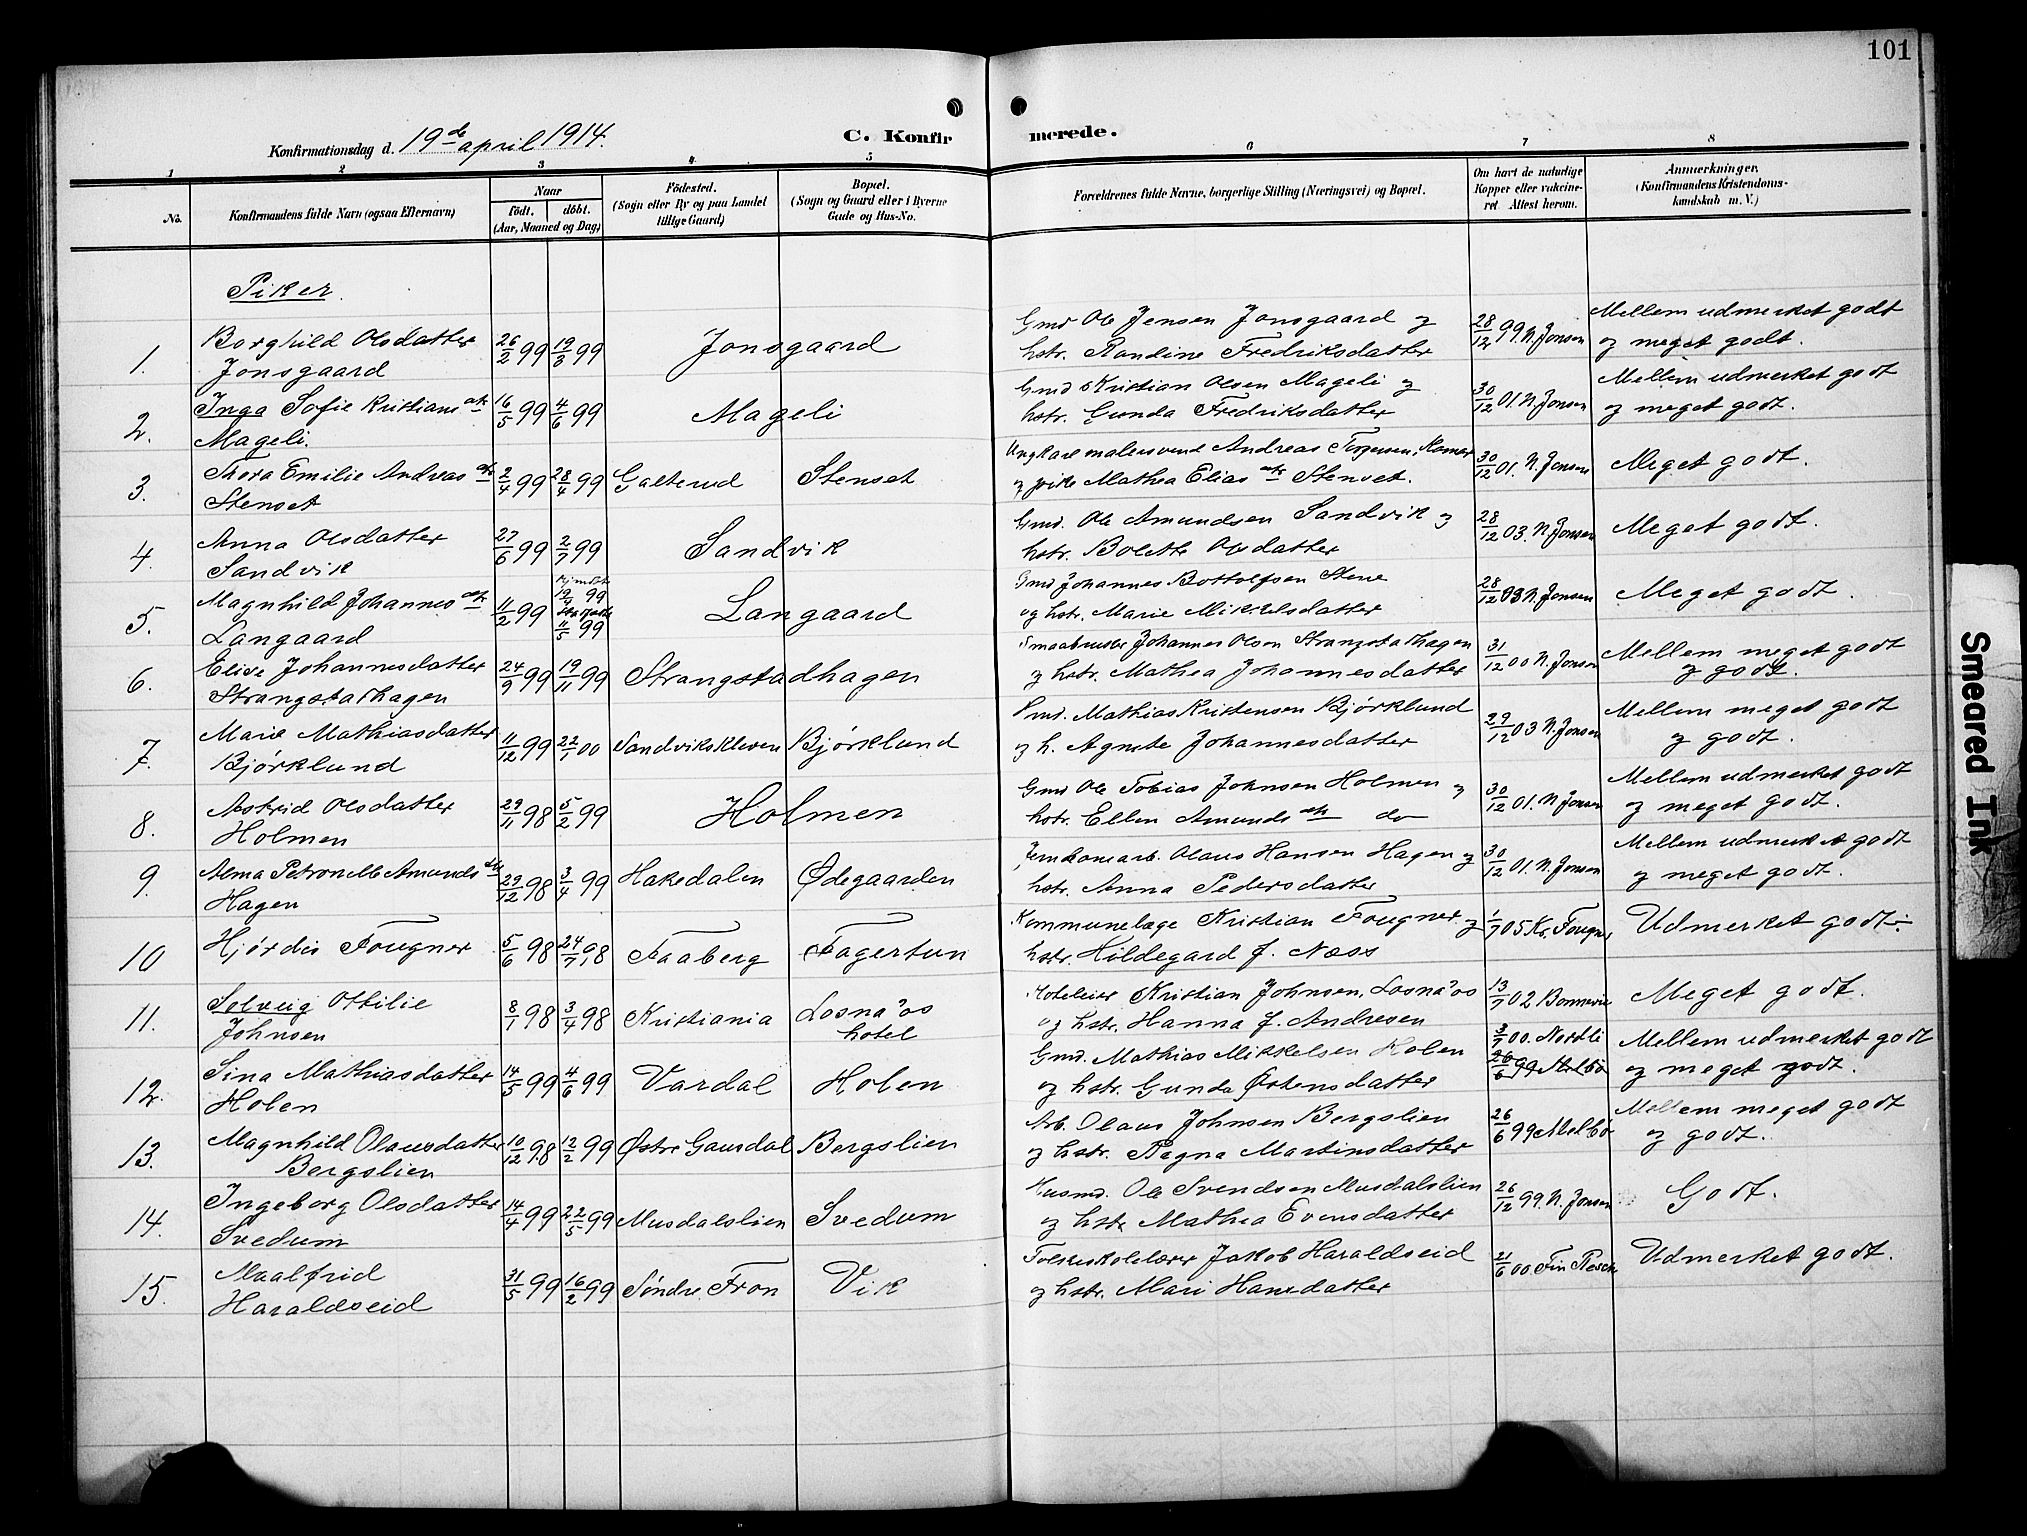 101
Konfirmationsdag d. 19de april 1914.
C. Konfirmerede.
1 2 3 4 5 6 7 8
No.
Konfirmandens fulde Navn (ogsaa Efternavn)
Naar
födt. döbt.
(Aar, Maaned og Dag)
Födested.
(Sogn eller By og paa Landet
tillige Gaard)
Bopæl.
(Sogn og Gaard eller i Byerne
Gade og Hus-No.
Forældrenes fulde Navne, borgerlige Stilling (Næringsvei) og Bopæl.
Om havt de naturlige
Kopper eller vakcine-
ret. Attest herom.
Anmærkninger.
(Konfirmandens Kristendoms-
kundskab m. V.)
Piker.
1. Borghild Olsdatter
Jonsgaard
26/2 99 19/3 99 Jonsgaard
Gmd Ole Jensen Jonsgaard og
hstr. Randine Fredriksdatter
28/12 99 N. Jonsen
Mellem udmerket godt
og meget godt.
2. Inga Sofie Kristians dtr
Mageli.
16/5 99 4/6 99 Mageli
Gmd Kristian Olsen Mageli og
hstr. Gunda Fredriksdatter
30/12 01. N. Jonsen
Mellem udmerket godt
og meget godt.
3. Thora Emilie Andreas dtr
Stenset
2/4 99 28/4 99 Galterud Stenset
Ungkarl malersvend Andreas Torgersen,
og pike Mathea Elias dtr Stenset.
30/12 01. N. Jonsen
Meget godt.
4. Anna Olsdatter
Sandvik
27/6 99 2/7 99 Sandvik
Gmd. Ole Amundsen Sandvik og
hstr. Bolette Olsdatter
28/12 03. N. Jonsen
Meget godt.
5. Magnhild Johannes dtr
Langaard
11/2 99 hjmdt 19/4 99
11/5 99 Langaard
Gmd Johannes Bottolfsen Stene
og hstr. Marie Mikkelsdatter
28/12 03 N. Jonsen
Meget godt.
6. Elise Johannesdatter
Strangstadhagen
24/9 99 19/11 99 Strangstadhagen
Smaabruker Johannes Olsen Strangstadhagen
og hstr. Mathea Johannesdatter
31/12 00 N. Jonsen
Mellem meget godt
og godt.
7. Marie Mathiasdatter
Bjørklund
11/12 99 22/1 00 Sandvikskleven Bjørklund
Smd. Mathias Kristensen Bjørklund
og h. Agnete Johannesdatter
29/12 03 N. Jonsen
Mellem meget godt
og godt.
8. Astrid Olsdatter
Holmen
29/11 98 5/2 99 Holmen
Gmd Ole Tobias Johnsen Holmen og
hstr. Ellen Amunds dtr do
30/12 01. N Jonsen
Mellem udmerket godt
og meget godt.
9. Alma Petronelle Amunds dtr
Hagen
29/12 98 3/4 99 Hakedalen Ødegaarden
Jernbanearb. Olaus Hansen Hagen og
hstr. Anna Pedersdatter
30/12 01. N. Jonsen
Mellem udmerket godt
og meget godt.
10 Hjørdis Fougner
5/6 98 24/7 98 Faaberg Fagertun
Kommunelæge Kristian Fougner og
hstr. Hildegard f. Næss
1/7 05 Kr. Fougner
Udmerket godt.
11. Solveig Ottilie
Johnsen
8/1 98 3/4 98 Kristiania Losnaos
hotel
Hoteleier Kristian Johnsen, Losnaos
og hstr. Hanna f. Andresen
13/7 02 Bonnevie
Meget godt.
12. Sina Mathiasdatter
Holen
14/5 99 4/6 99 Vardal Holen
Gmd. Mathias Mikkelsen Holen
og hstr. Gunda Østensdatter
3/7 00. Nordli
26/6 99 Melbö
Mellem udmerket godt
og meget godt.
13. Magnhild Olausdatter
Bergslien
10/12 98 12/2 99 Østre Gausdal Bergslien
Arb. Olaus Johnsen Bergslien
og hstr. Ragna Martinsdatter
26/6 99 Melbö
Mellem meget godt
og godt.
14. Ingeborg Olsdatter
Svedum
14/4 99 22/5 99 Musdalslien Svedum
Husmd. Ole Svendsen Musdalslien
og hstr Mathea Evensdatter
26/12 99. N. Jonsen
Godt.
15. Maalfrid
Haraldseid
31/5 99 16/2 99 Søndre Fron Vik
Folkeskolelærer Jakob Haraldseid
og hstr. Mari Hansdatter
21/6 00
Udmerket godt.
Smeared Ink